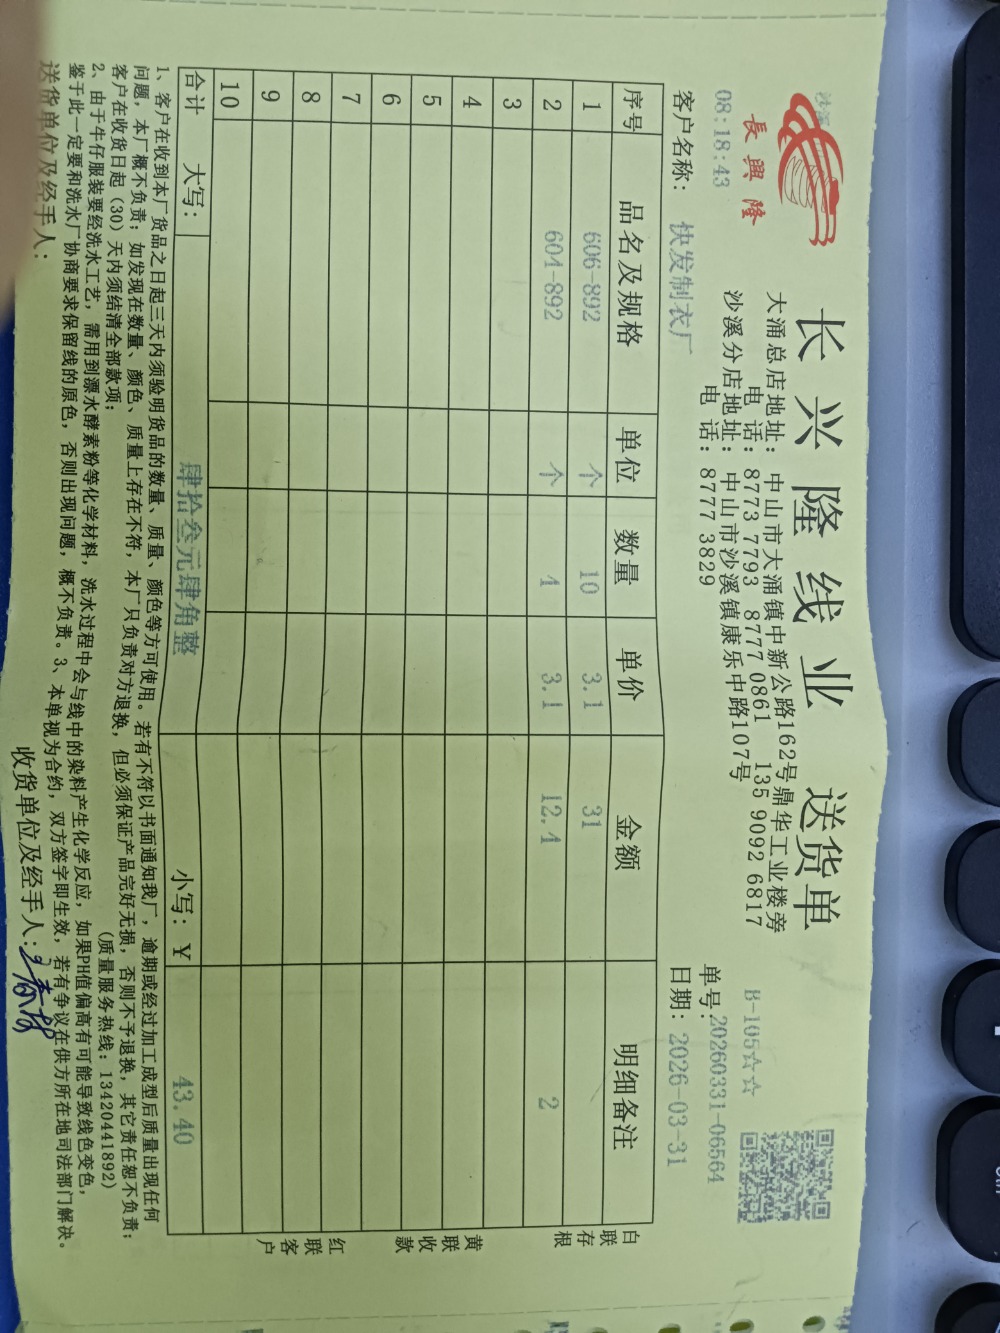 沙溪
長興隆
08:18:43
长兴隆线业 送货单
大涌总店地址：中山市大涌镇中新公路162号鼎华工业楼旁
电 话：8773 7793 8777 0861 135 9092 6817
沙溪分店地址：中山市沙溪镇康乐中路107号
电 话：8777 3829
B-105☆☆
单号：20260331-06564
客户名称： 快发制衣厂 日期：2026-03-31
序号 品名及规格 单位 数量 单价 金额 明细备注
1 606-892 个 10 3.1 31
2 604-892 个 4 3.1 12.4 2
3
4
5
6
7
8
9
10
合计 大写： 肆拾叁元肆角整 小写：¥ 43.40
白联存根
黄联收款
红联客户
1、客户在收到本厂货品之日起三天内须验明货品的数量、质量、颜色等方可使用。若有不符以书面通知我厂，逾期或经过加工成型后质量出现任何
问题，本厂概不负责；如发现在数量、颜色、质量上存在不符，本厂只负责对方退换，但必须保证产品完好无损，否则不予退换，其它责任恕不负责；
客户在收货日起（30）天内须结清全部款项； （质量服务热线：13420441892）
2、由于牛仔服装要经洗水工艺，需用到漂水酵素粉等化学材料，洗水过程中会与线中的染料产生化学反应，如果PH值偏高有可能导致线色变色，
鉴于此一定要和洗水厂协商要求保留线的原色，否则出现问题，概不负责。3、本单视为合约，双方签字即生效，若有争议在供方所在地司法部门解决。
送货单位及经手人： 收货单位及经手人：